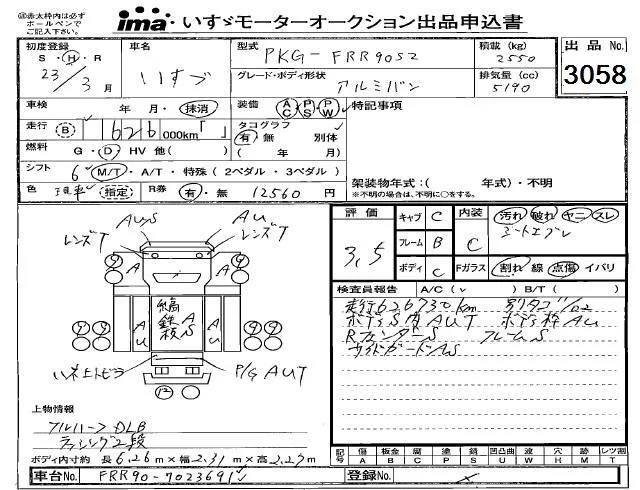 ※赤太枠内は必ず
ボールペンで
ご記入下さい。
ima・いすゞモーターオークション出品申込書
初度登録 S・H・R 23年 3月
車名 いすゞ
型式 PKG-FRR90S2
積載(kg) 2550
出品No. 3058
グレード・ボディ形状 アルミバン
排気量(cc) 5190
車検 年 月・抹消
装備 AC PS PW
特記事項
走行 B 626 000km
タコグラフ 有・無 別体
燃料 G・D・HV 他( )
( 年 月)
シフト 6 M/T・A/T・特殊(2ペダル・3ペダル)
架装物年式:( 年式)・不明
色 指定
R券 有・無 12560円
※不明の場合は、不明に〇をする。
評価 3.5
キャブ C
内装 C
汚れ 破れ ヤニ スレ
シートエグレ
フレーム B
ボディ C
Fガラス 割れ 線 点傷 イバリ
AuS AU
レンズT レンズT
A A
A A
AU AU
縞鉄板 S
P/G AUT
検査員報告 A/C(v ) B/T( )
走行626730km
ボデS扉AUT ボデ枠AU
RフェンダーS フレームS
サイドガードAS
上物情報
フルハーフ DLB
ラッシング2段
ボディ内寸約 長6.26m×幅2.31m×高2.27m
記号 傷A 板金B 腐C 塗P 錆S 凹凸曲U 波W 穴H 跡M レツ割T
車台No. FRR90-7023691
登録No.